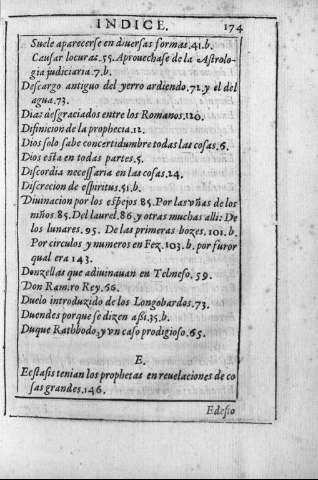 INDICE. 174
Suele aparecerse en diuersas formas.41.b.
Causar locuras.55. Aprouechase de la Astrolo-
gia judiciaria.7.b.
Descargo antiguo del yerro ardiendo.72.y el del
agua.73.
Dias desgraciados entre los Romanos.120.
Difinicion de la prophecia.12.
Dios solo sabe concertidumbre todas las cosas.6.
Dios esta en todas partes.5.
Discordia necessaria en las cosas.24.
Discrecion de espiritus.51.b.
Diuinacion por los espejos 85. Por las vñas de los
niños.85. Del laurel.86.y otras muchas alli: De
los lunares.95. De las primeras bozes.101.b.
Por circulos y numeros en Fez.103.b. por furor
qual era 143.
Donzellas que adiuinauan en Telmeso.59.
Don Ramiro Rey.66.
Duelo introduzido de los Longobardos.73.
Duendes porque se dizen assi.35.b.
Duque Rathbodo, y vn caso prodigioso.65.
E.
Ecstasis tenian los prophetas en reuelaciones de co
sas grandes.146.
Edesio